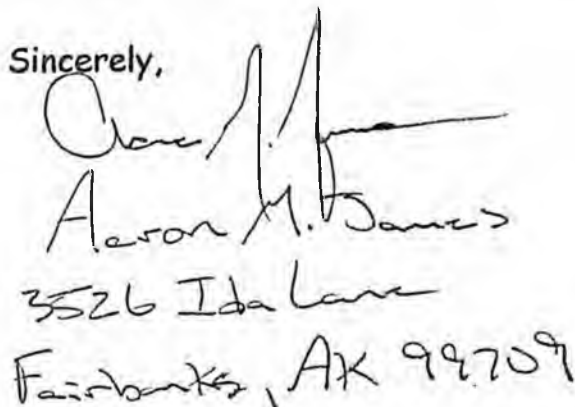 Sincerely,
Aaron M. James
3526 Ida Lane
Fairbanks, AK 99709